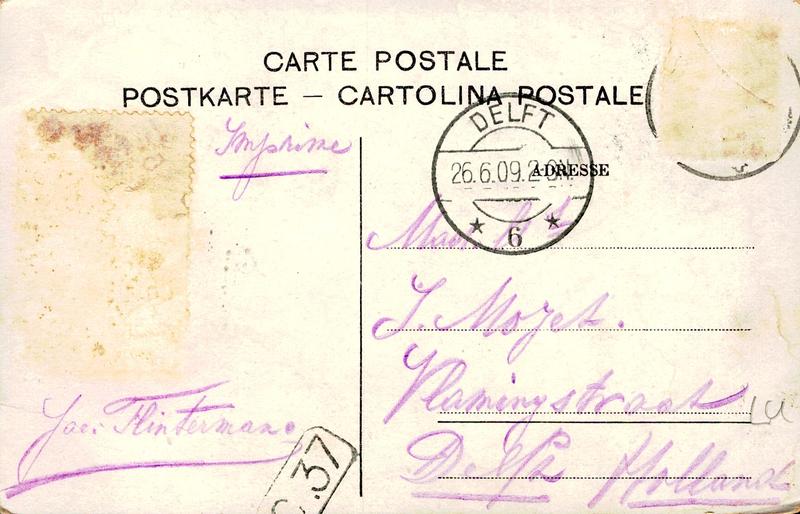 CARTE POSTALE
POSTKARTE — CARTOLINA POSTALE
Imprime
DELFT
26.6.09. 2-3N.
6
ADRESSE
J. Mozet.
Vlamingstraat
Delft Holland
Jac: Flintermans
.37